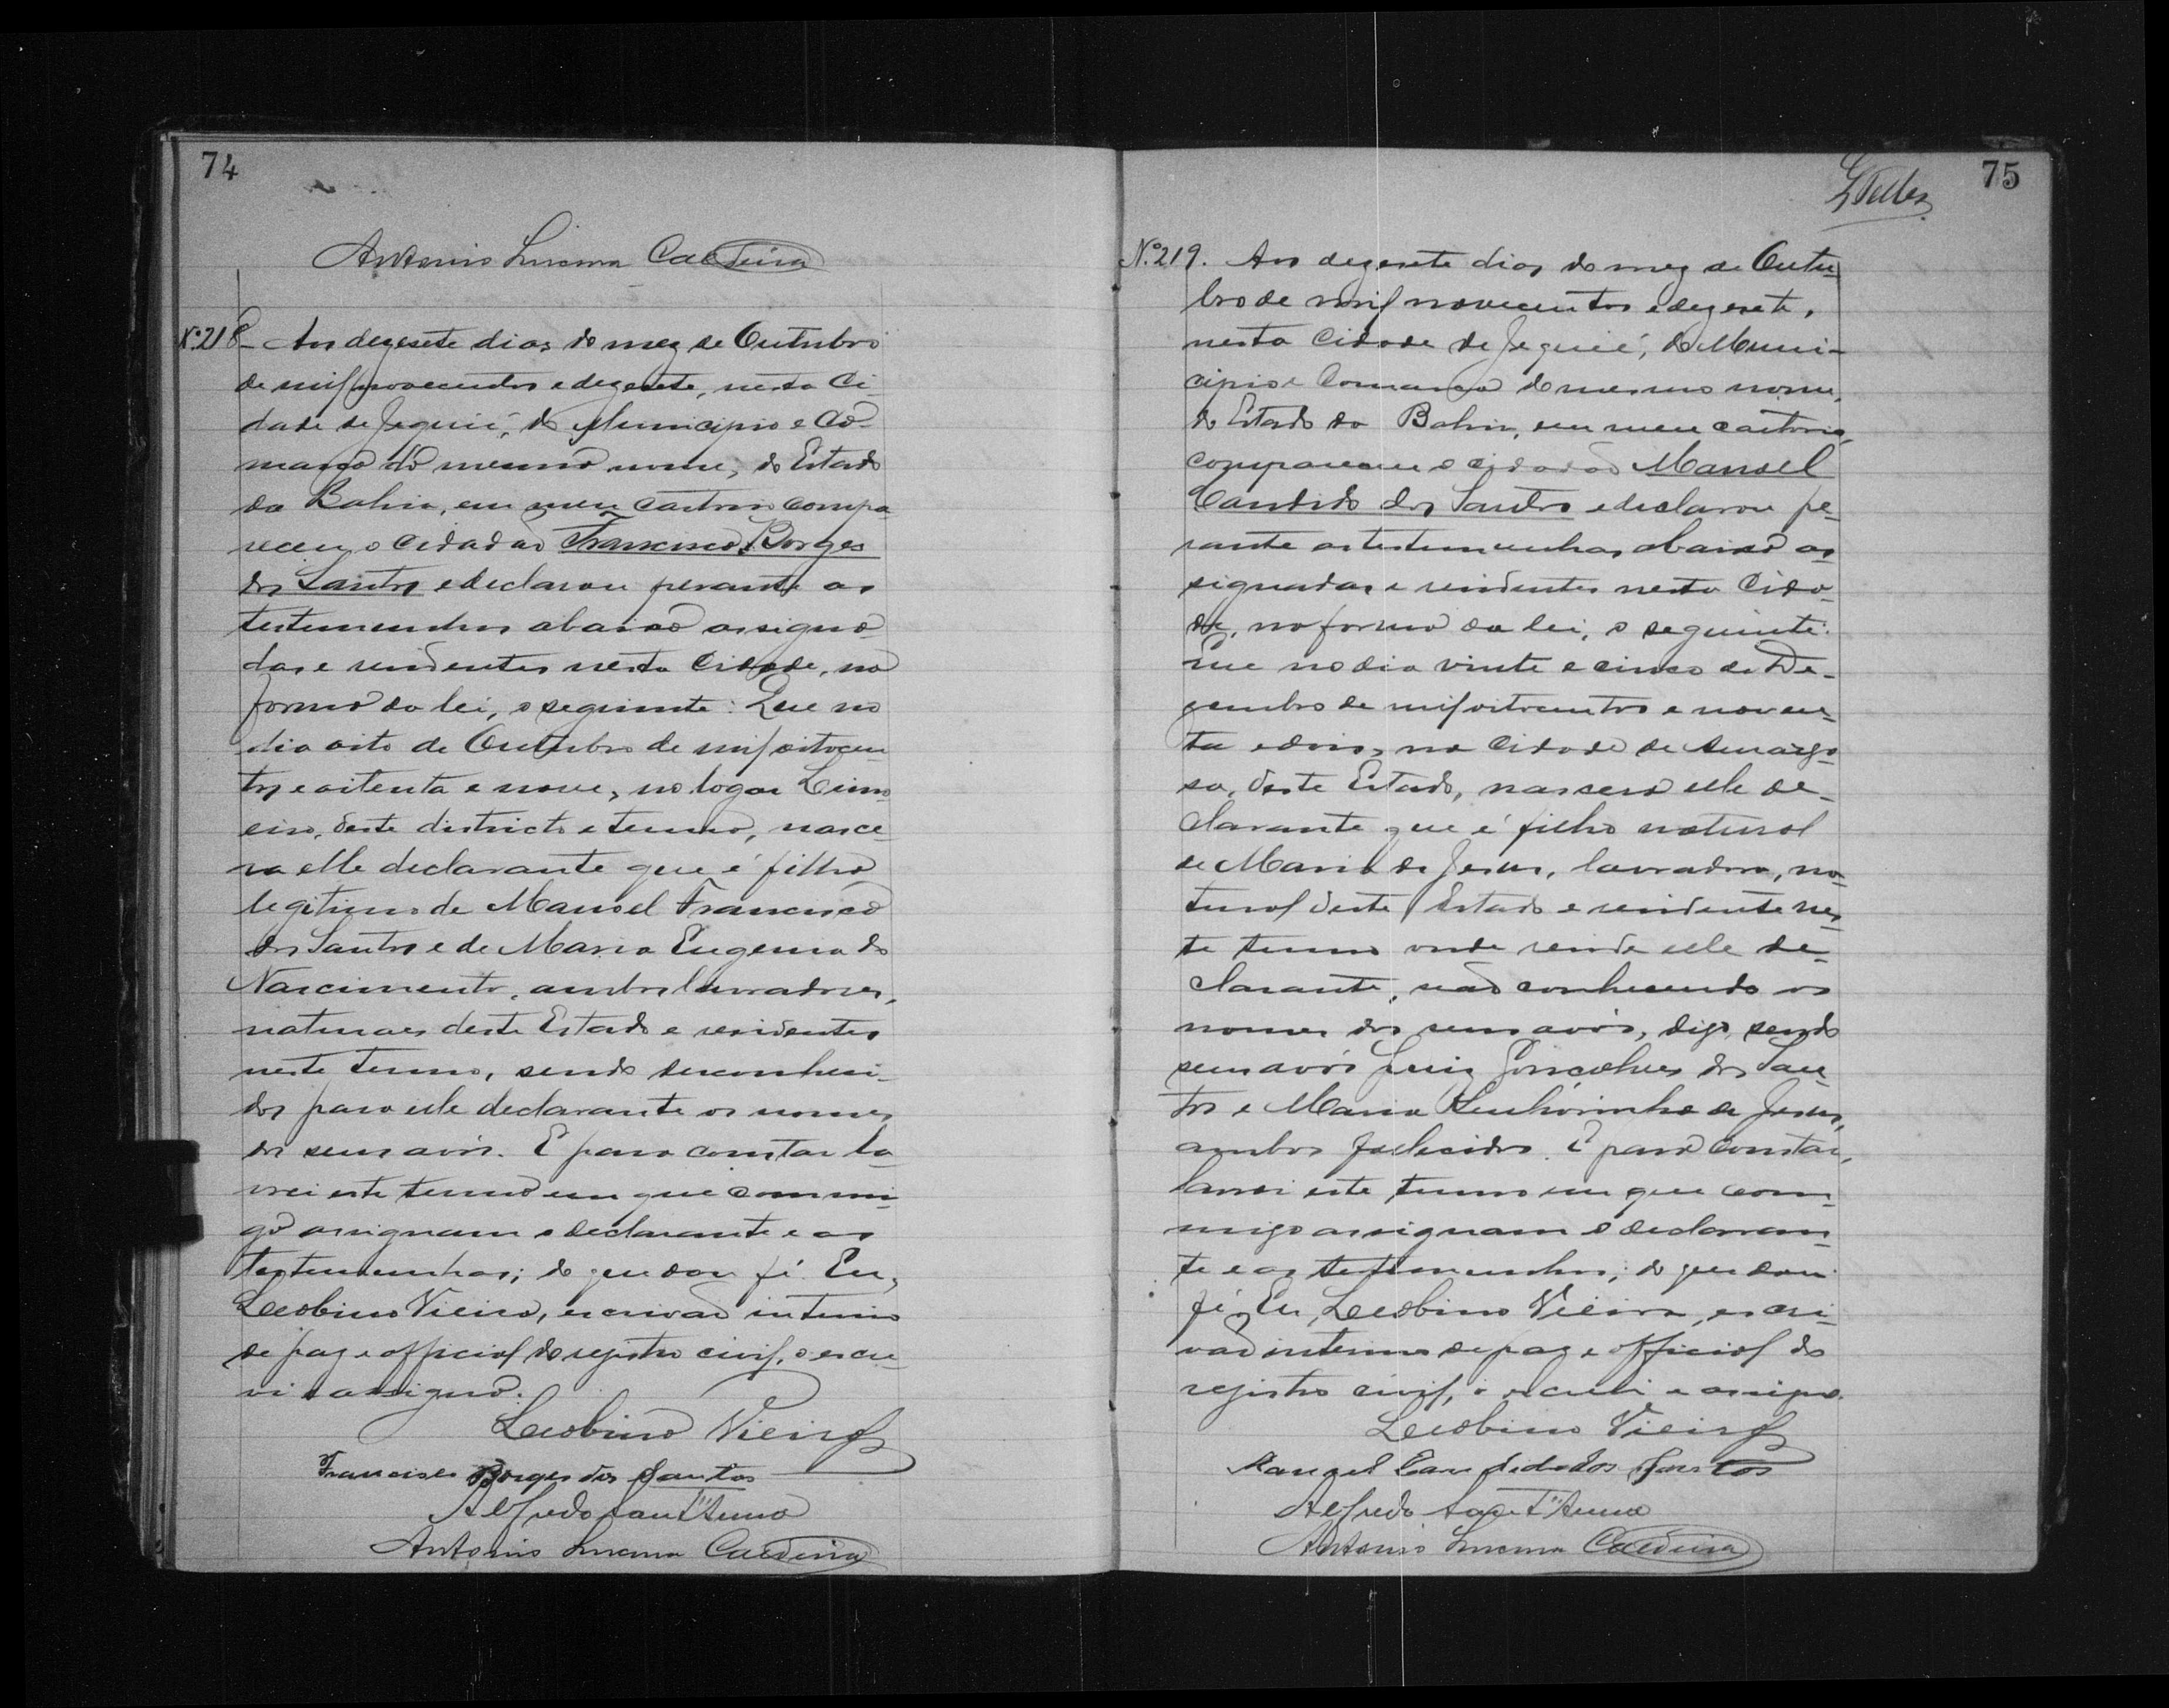 74
Antonio Lucena Caldeira
Nº 218 - Aos dezesete dias do mez de Outubro
de mil novecentos e dezesete, nesta Ci-
dade de Jequié, do Municipio e Co-
marca do mesmo nome, do Estado
da Bahia, em meu cartorio compa-
receu o cidadão Francisco Borges
dos Santos e declarou perante as
testemunhas abaixo assigna-
das e residentes nesta Cidade, na
forma da lei, o seguinte: Que no
dia oito de Outubro de mil oitocen-
tos e oitenta e nove, no logar Limo-
eiro, deste districto e termo, nasce-
ra elle declarante que é filho
legitimo de Manoel Francisco
dos Santos e de Maria Eugenia do
Nascimento, ambos lavradores,
naturaes deste Estado e residentes
neste termo, sendo desconheci-
dos para elle declarante os nomes
dos seus avós. E para constar la-
vrei este termo em que commi-
go assignam o declarante e as
testemunhas; do que dou fé. Eu,
Leobino Vieira, escrivão interino
de paz e official do registro civil, o escre-
vi e assigno.
Leobino Vieira
Francisco Borges dos Santos
Alfredo Sant'Anna
Antonio Lucena Caldeira
75
Nº 219. Aos dezesete dias do mez de Outu-
bro de mil novecentos e dezesete,
nesta Cidade de Jequié, do Muni-
cipio e Comarca do mesmo nome,
do Estado da Bahia, em meu cartorio,
compareceu o cidadão Manoel
Candido dos Santos e declarou pe-
rante as testemunhas abaixo as-
signadas e residentes nesta Cida-
de, na forma da lei, o seguinte:
Que no dia vinte e cinco de De-
zembro de mil oitocentos e noven-
ta e dois, na Cidade de Amargo-
sa, deste Estado, nascera elle de-
clarante que é filho natural
de Maria de Jesus, lavradora, na-
tural deste Estado e residente nes-
te termo onde reside elle de-
clarante, não conhecendo os
nomes dos seus avós, digo, sendo
seus avós Luiz Gonçalves dos San-
tos e Maria Senhorinha de Jesus,
ambos fallecidos. E para constar,
lavrei este termo em que com-
migo assignam o declaran-
te e as testemunhas; do que dou
fé. Eu, Leobino Vieira, escri-
vão interino de paz e official do
registro civil, o escrevi e assigno.
Leobino Vieira
Manoel Candido dos Santos
Alfredo Sant'Anna
Antonio Lucena Caldeira